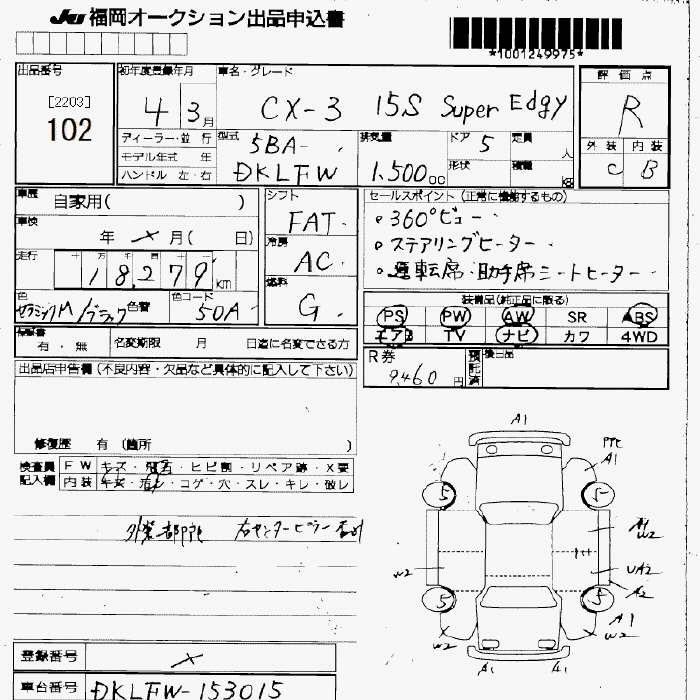 JU 福岡オークション出品申込書
*1001249975*
出品番号
[2203]
102
初年度登録年月
4 3月
車名・グレード
CX-3 15S Super Edgy
評価点
R
外装 内装
C B
ディーラー・並行
モデル年式 年
ハンドル 左・右
型式
5BA-
DKLFW
排気量
1.500cc
ドア 5
定員 人
形状
積載 kg
車歴
自家用( )
車検
年 × 月( 日)
走行
18,279 km
色
セラミックM/ブラック
色替
色コード
50A
シフト
FAT
冷房
AC
燃料
G
セールスポイント(正常に機能するもの)
・360°ビュー
・ステアリングヒーター
・運転席・助手席シートヒーター
装備品(純正品に限る)
PS PW AW SR ABS
エアB TV ナビ カワ 4WD
保証書
有・無
名変期限 月 日迄に名変できる方
R券
9,460円
預託済
後日品
出品店申告欄(不良内容・欠品など具体的に記入して下さい)
修復歴 有 (箇所 )
検査員
記入欄
FW キズ・飛石・ヒビ割・リペア跡・X要
内装 キズ・汚れ・コゲ・穴・スレ・キレ・破レ
右センターピラー
A1
A1
5 5
W2
W2
UA2
A2
5 5
A1
W2
W2
A1 A1
登録番号 ×
車台番号 DKLFW-153015